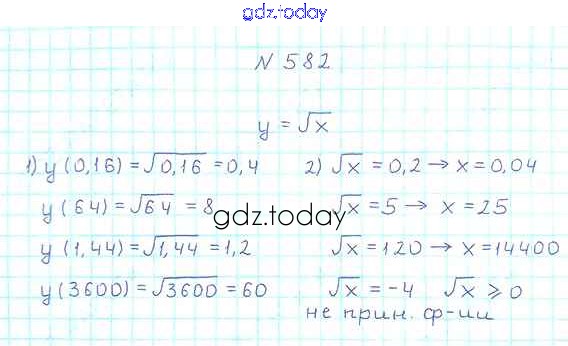 gdz.today
N 582
y = √x
1) y(0,16) = √0,16 = 0,4
y(64) = √64 = 8
y(1,44) = √1,44 = 1,2
y(3600) = √3600 = 60
2) √x = 0,2 → x = 0,04
√x = 5 → x = 25
√x = 120 → x = 14400
√x = -4 √x ⩾ 0
не прин. ф-ии
gdz.today